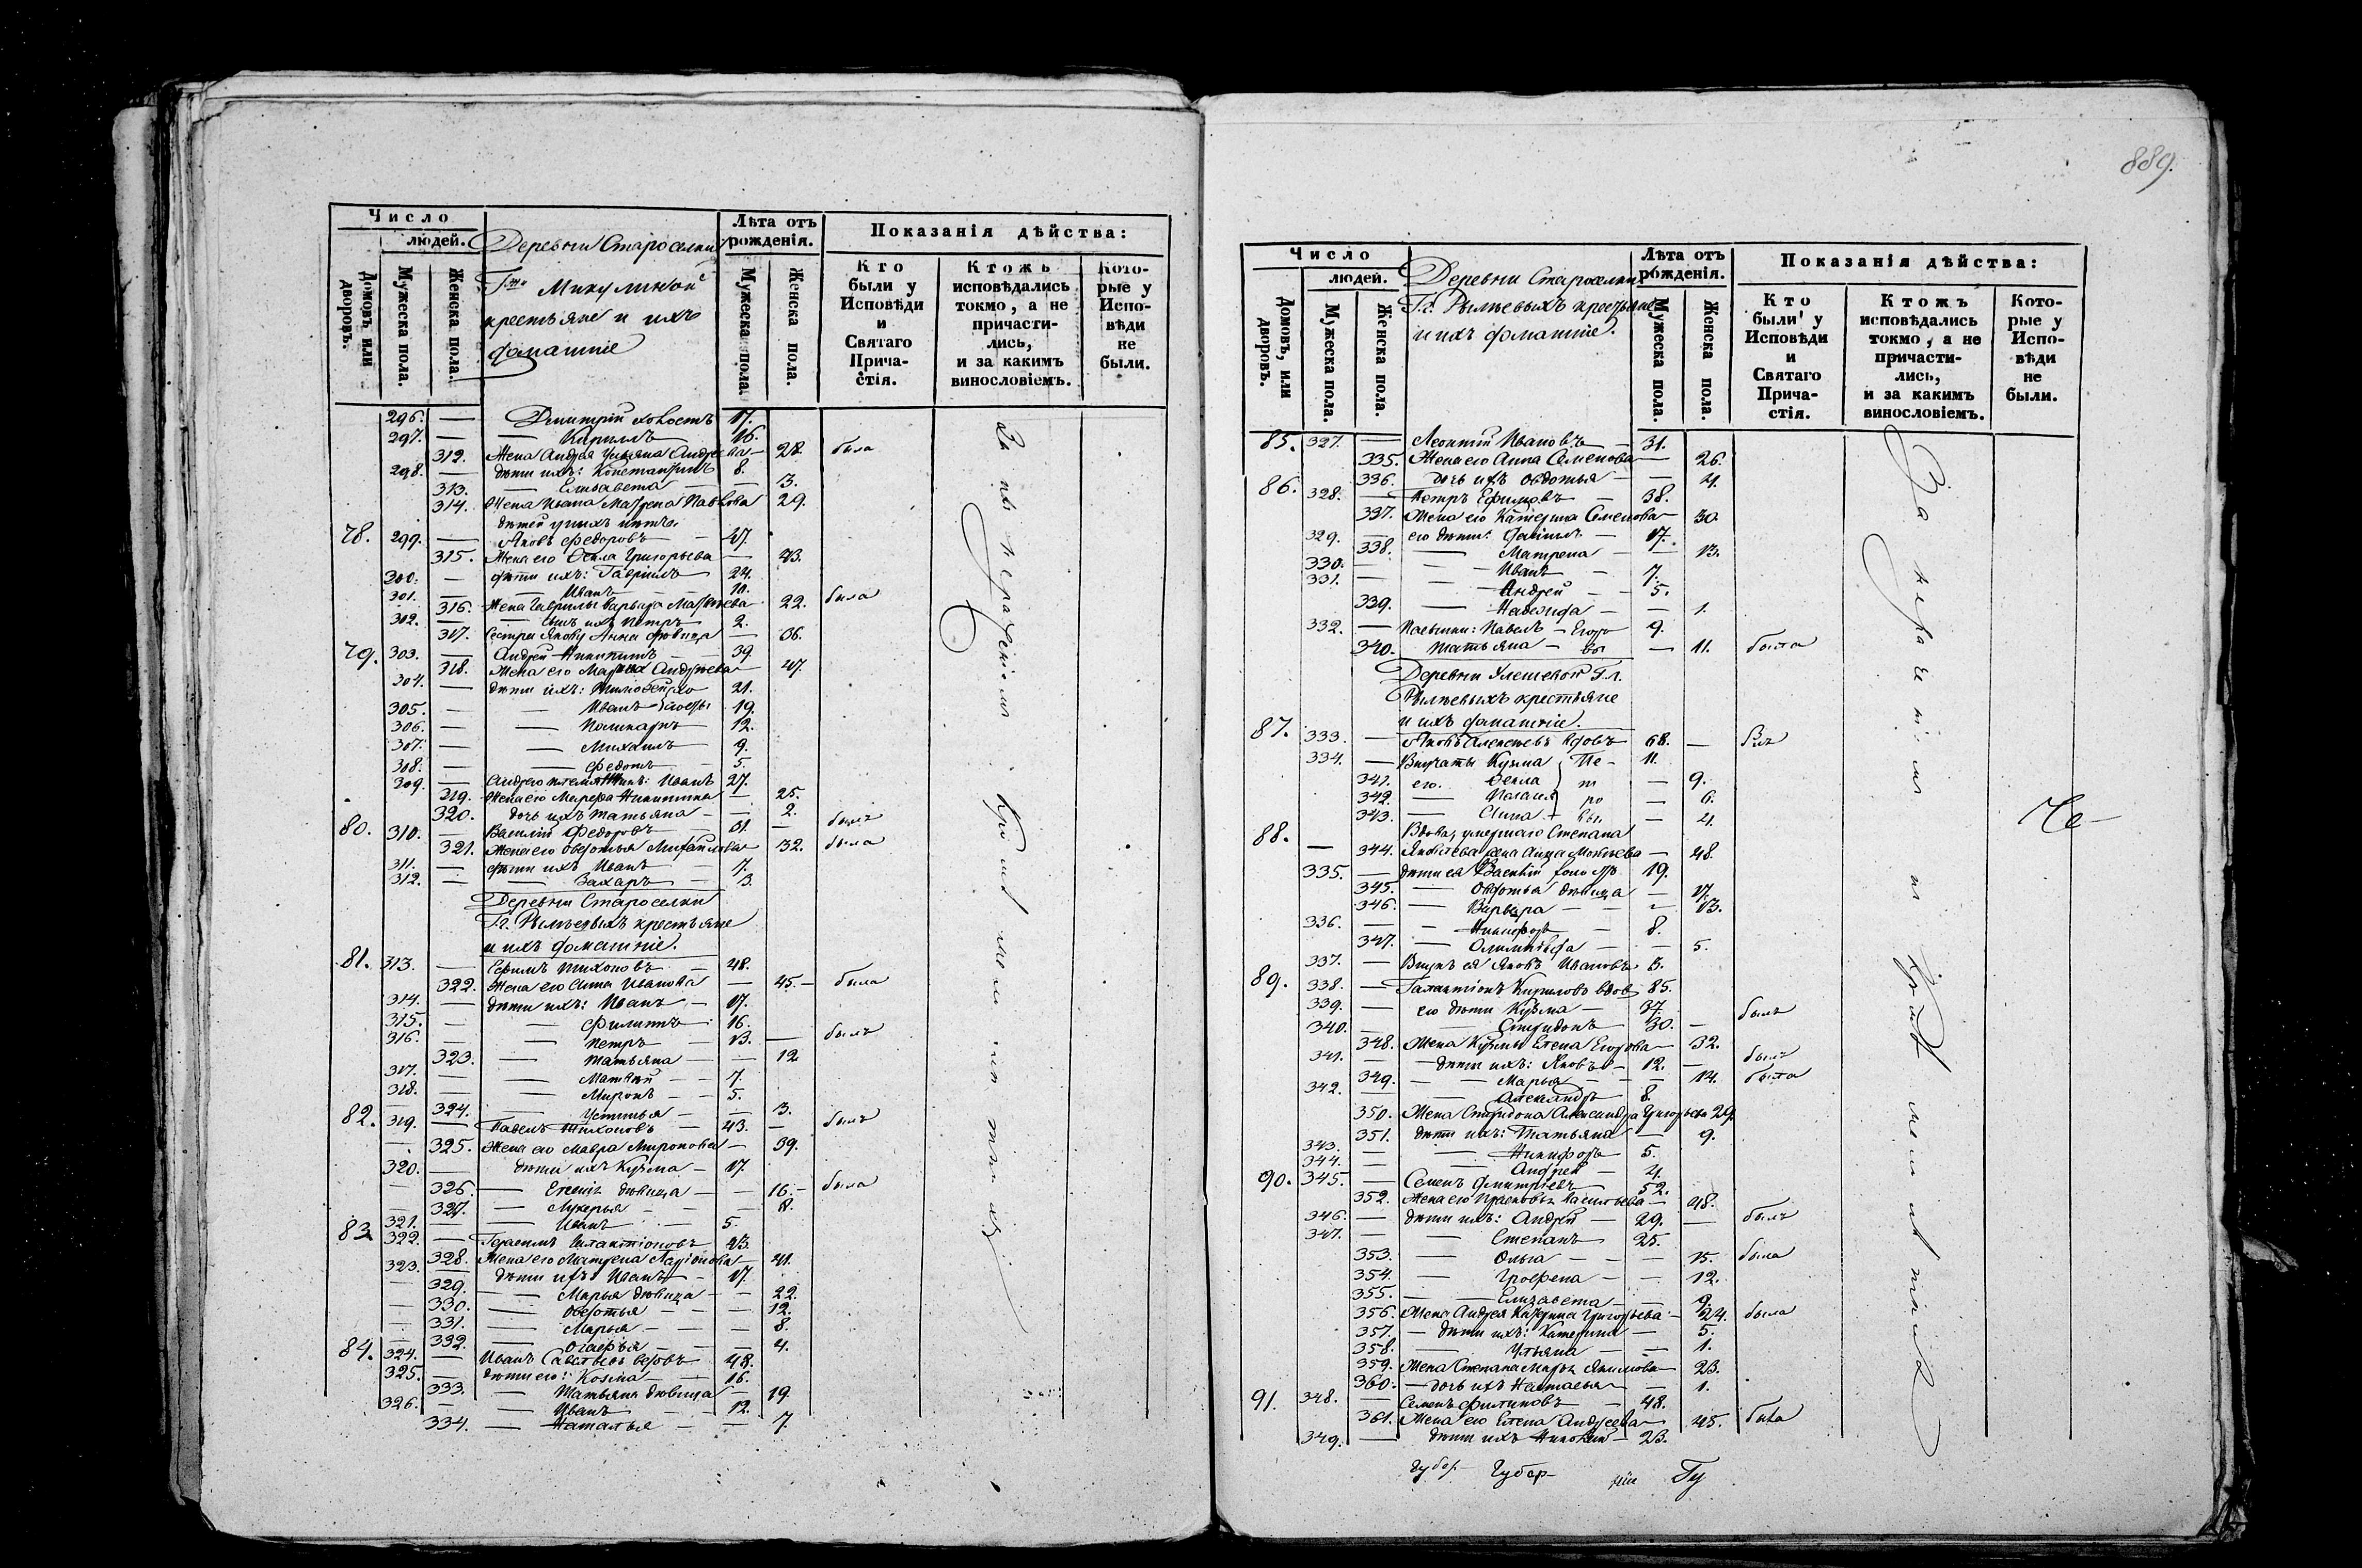 Число
людей.
Домовъ или дворовъ.
Мужеска пола.
Женска пола.
Деревни Староселки
Микулиной
крестьяне и ихъ
домашніе
Лѣта отъ рожденія.
Мужеска пола.
Женска пола.
Показанія дѣйства:
Кто были у Исповѣди и Святаго Прича-стія.
Ктожъ исповѣдались токмо, а не причасти-лись, и за какимъ винословіемъ.
Кото-рые у Испо-вѣди не были.
296. — Дмитрій холостъ 17.
297. — Кириллъ 16.
312. Жена Андрея Ульяна Андреева — 28. была
298. — дѣти ихъ: Константинъ 8.
313. — Елисавета — 3.
314. Жена Ивана Матрена Павлова 29.
дѣтей у нихъ нѣтъ.
78. 299. — Яковъ Федоровъ — 47.
315. Жена его Фекла Григорьева — 43.
300. — дѣти ихъ: Гавріилъ 24.
301. — Иванъ 10.
316. Жена Гаврилы Варвара Матвѣева 22. была
302. — сынъ ихъ Петръ 2.
317. Сестра Якову Анна дѣвица — 36.
79. 303. — Андрей Никитинъ 39.
318. Жена его Марѳа Андреева 47.
304. — дѣти ихъ: Тимофей 21.
305. — Иванъ 19.
306. — 12.
307. — Михаилъ 9.
308. — Федотъ 5.
309. — Андрею племянникъ: Иванъ 27.
319. Жена его Никитина — 25.
320. дочь ихъ Татьяна — 2.
80. 310. — Василій Федоровъ 31. — былъ
321. Жена его Овдотья Михайлова 32. была
311. — дѣти ихъ Иванъ 7.
312. — Захаръ — 3.
Деревни Староселки
Г.г. Рылѣевыхъ крестьяне
и ихъ домашніе.
81. 313. — Ефимъ Тихоновъ — 48.
322. Жена его Анна Иванова — 45. — была
314. — дѣти ихъ: Иванъ — 17.
315. — Филиппъ 16.
316. — Петръ — 13. — былъ
323. — Татьяна — 12
317. — Матвѣй — 7.
318. — Миронъ — 5.
324. — Устинья — 3.
82. 319. — Павелъ Тихоновъ — 43. — былъ
325. Жена его Мавра Миронова — 39.
320. — дѣти ихъ Кузьма — 17.
326. — дѣвица — 16. — была
327. — Лукерья — 8.
321. — Иванъ — 5.
83 322. — Герасимъ Галактіоновъ 43.
328. Жена его Матрена Ларіонова — 41.
323. — дѣти ихъ: Иванъ — 17.
329. — Марья дѣвица — 22.
330. — Овдотья — 12.
331. — Марья — 8.
332. — Огафья — 4.
84. 324. — Иванъ Савельевъ вдовъ 48.
325. — дѣти его: Козма — 16.
333. — Татьяна дѣвица — 19
326. — Иванъ — 12.
334. — Наталья — 7.
За нераденіемъ
889.
Число
людей.
Домовъ, или дворовъ.
Мужеска пола.
Женска пола.
Деревни Староселки
Г.г. Рылѣевыхъ крестьяне
и ихъ домашніе.
Лѣта отъ рожденія.
Мужеска пола.
Женска пола.
Показанія дѣйства:
Кто были у Исповѣди и Святаго Прича-стія.
Ктожъ исповѣдались токмо, а не причасти-лись, и за какимъ винословіемъ.
Кото-рые у Испо-вѣди не были.
85. 327. — Леонтій Ивановъ — 31.
335. Жена его Анна Семенова — 26.
336. дочь ихъ Овдотья — 4.
86. 328. — Петръ Ефимовъ — 38.
337. Жена его Катерина Семенова — 30.
329. — его дѣти: Даніилъ — 17.
338. — Матрена — 13.
330. — Иванъ — 7.
331. — Андрей — 5.
339. — Надежда — 1.
332. — Павелъ — 9.
340. Татьяна — 11. была
Деревни Г.г.
Рылѣевыхъ крестьяне
и ихъ домашніе.
87. 333. — Яковъ Алексѣевъ вдовъ 68. — былъ
334. — Внучаты Кузма Пе- 11.
341. его. Фекла т — 9.
342. — Пелагея ро — 6.
343. — Анна вы — 4.
88. Вдова, умершаго Степана
— 344. Яковлева жена Анна — 48.
335. — дѣти ея Василій холостъ 19.
345. — Овдотья дѣвица — 17.
346. — Варвара — 13.
336. — Никифоръ — 8.
347. — Олимпіада — 5.
337. — Внукъ ея Яковъ Ивановъ 3.
89. 338. — Галактіонъ Кириловъ вдовъ 85.
339. — его дѣти Кузма — 37. былъ
340. — Спиридонъ 30. —
348. Жена Кузмы Елена Егорова — 32.
341. — дѣти ихъ: Яковъ — 12. — былъ
349. — Марья — 14. была
342. — Александръ 8.
350. Жена Спиридона Александра Григорьева 29.
351. дѣти ихъ: Татьяна — 9.
343. — Никифоръ 5.
344. — Андрей — 4.
90. 345. — Семенъ Дмитріевъ — 52.
352. Жена его Прасковья Васильева — 48.
346. — дѣти ихъ: Андрей — 29. — былъ
347. — Степанъ 25.
353. — Ольга — 15. была
354. — Грофена — 12.
355. — Елизавета — 9.
356. Жена Андрея Катерина Григорьева — 24. была
357. — дѣти ихъ: Катерина — 5.
358. — Ульяна — 1.
359. Жена Степана Марья Якимова — 23.
360. — дочь ихъ Наталья — 1.
91. 348. — Семенъ Филиповъ — 48.
361. Жена его Елена Андреева — 45. была
349. — дѣти ихъ Николай — 23.
За нераденіемъ
Не-
Губер- Губер- ніи Гу